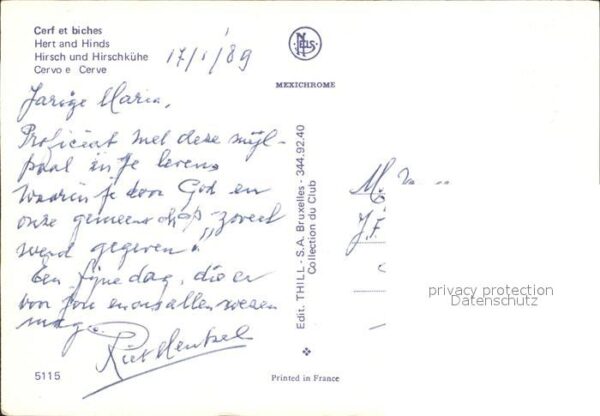 Cerf et biches
Hert and Hinds
Hirsch und Hirschkühe
Cervo e Cerve
17/1/89
NELS
MEXICHROME
Jarige Maria,
Proficiat met deze mijl-
paal in je leven,
Waarin je door God en
onze gemeenschap "zoveel
werd gegeven"
Een fijne dag, die er
voor jou en ons allen wezen
mag.
Riet Hentzel
Edit. THILL - S.A. Bruxelles - 344.92.40
Collection du Club
M
J.F.
privacy protection
Datenschutz
5115
Printed in France